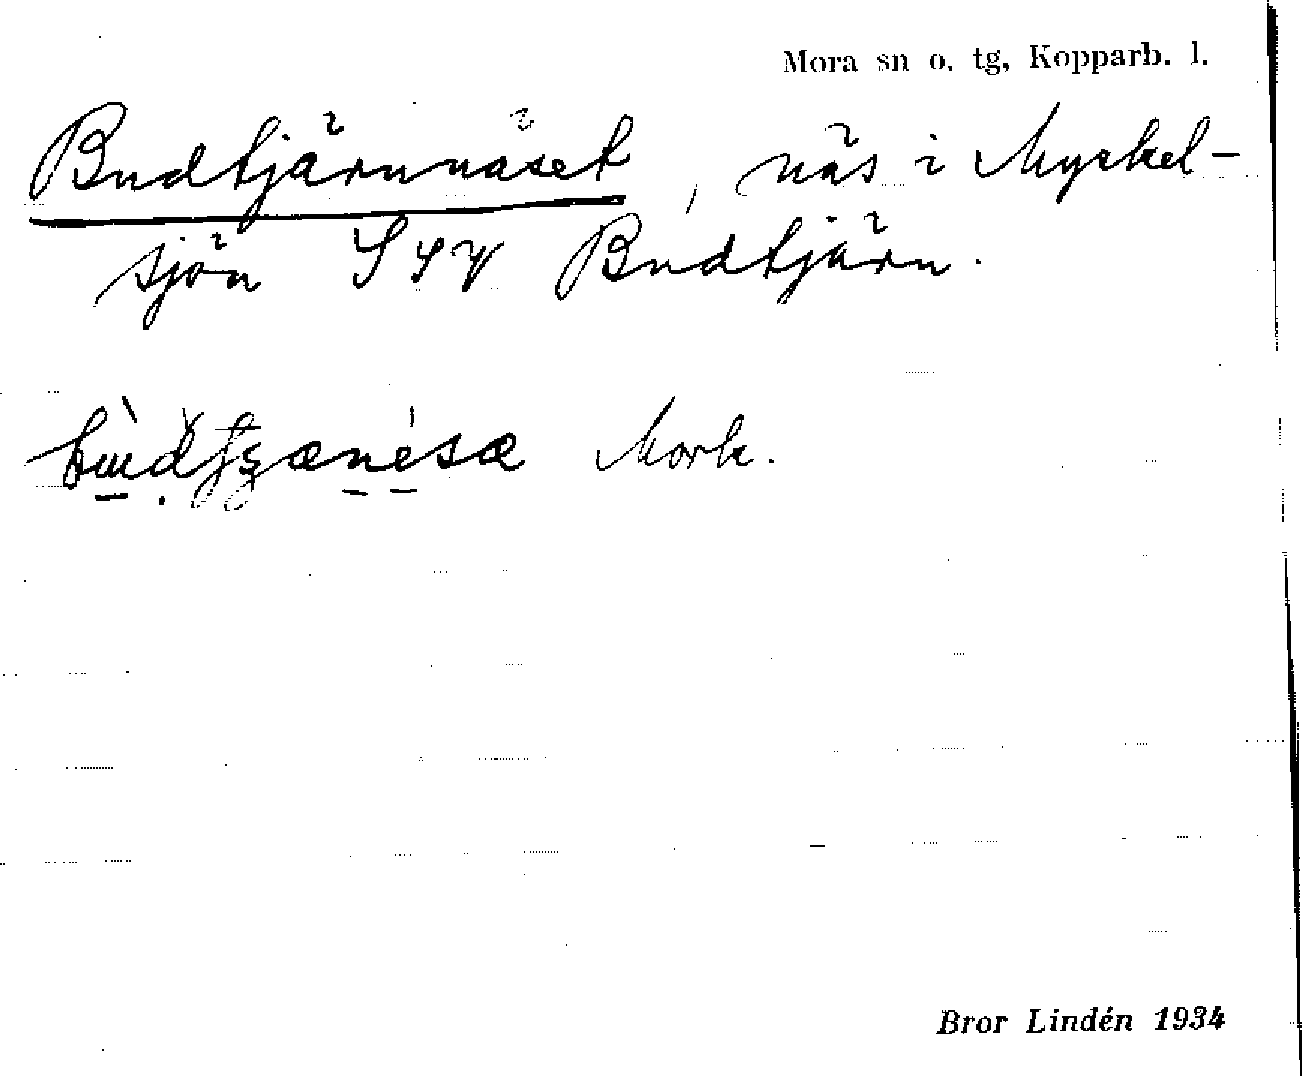 Mora sn o. tg, Kopparb. l.
Budtjärnnäset, näs i Myckel-
sjön SSV Budtjärn.
Mork.
Bror Lindén 1934